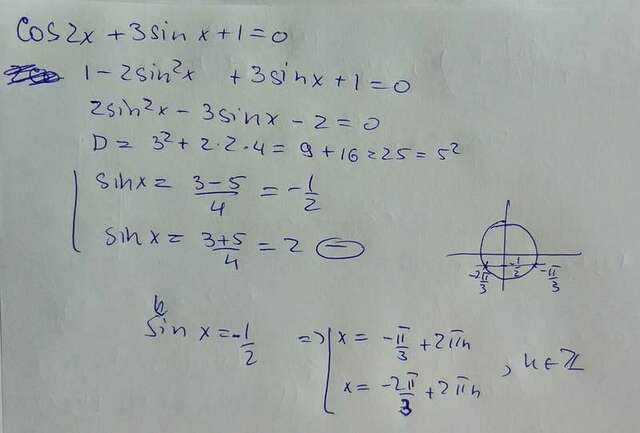 cos2x + 3sin x + 1 = 0
1 - 2sin²x + 3sinx + 1 = 0
2sin²x - 3sinx - 2 = 0
D = 3² + 2·2·4 = 9 + 16 = 25 = 5²
sinx = (3-5)/4 = -1/2
sinx = (3+5)/4 = 2 −
-2π/3 -1/2 -π/3
sin x = -1/2 => x = -π/3 + 2πn
x = -2π/3 + 2πn , n ∈ Z